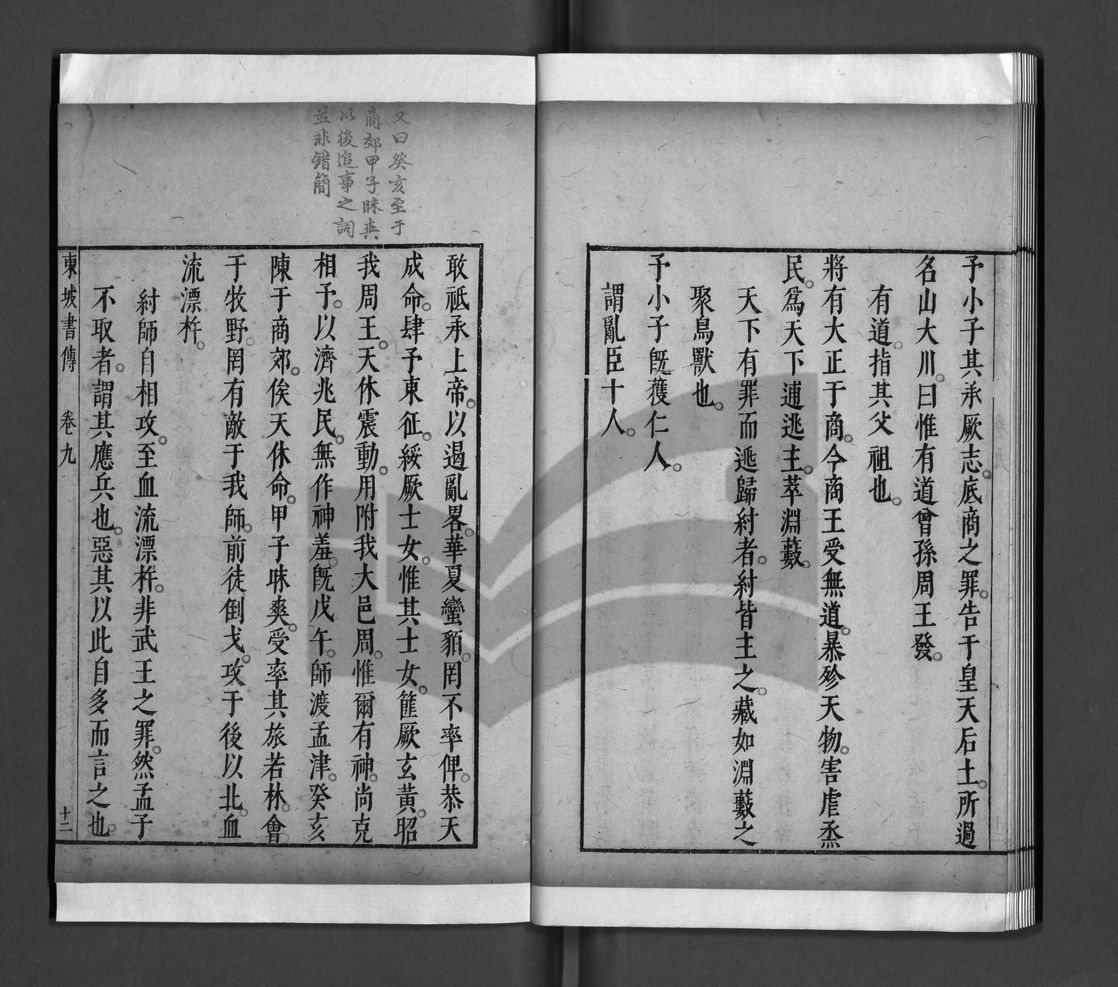 予小子其承厥志。底商之罪。告于皇天后土。所過
名山大川。曰惟有道曾孫周王發。
有道。指其父祖也。
將有大正于商。今商王受無道。暴殄天物。害虐烝
民。爲天下逋逃主。萃淵藪。
天下有罪而逃歸紂者。紂皆主之。藏如淵藪之
聚鳥獸也。
予小子旣獲仁人。
謂亂臣十人。
敢祗承上帝。以遏亂畧。華夏蠻貊。罔不率俾。恭天
成命。肆予東征。綏厥士女。惟其士女。篚厥玄黃。昭
我周王。天休震動。用附我大邑周。惟爾有神。尚克
相予。以濟兆民。無作神羞。旣戊午。師渡孟津。癸亥
陳于商郊。俟天休命。甲子昧爽。受率其旅若林。會
于牧野。罔有敵于我師。前徒倒戈。攻于後以北。血
流漂杵。
紂師自相攻。至血流漂杵。非武王之罪。然孟子
不取者。謂其應兵也。惡其以此自多而言之也。
東坡書傳 卷九 十二
又曰癸亥至于
商郊甲子昧爽
以後追事之詞
並非錯簡